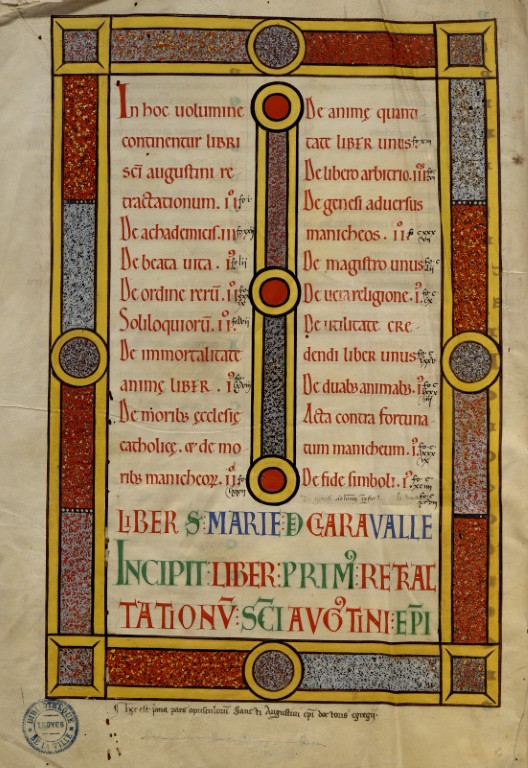 In hoc uolumine
continentur libri
sc̄i augustini re
tractationum. II
De achademicis. III
De beata uita. I
De ordine rerū. II
Soliloquiorū. II
De immortalitate
animę liber. I
De moribs ęcclesię
catholicę. & de mo
ribs manicheoꝝ. II
De animę quanti
tate liber unus
De libero arbitrio. III
De genesi aduersus
manicheos. II
De magistro unus
De uera religione. I
De utilitate cre
dendi liber unus
De duabs animabs. I
Acta contra fortuna
tum manicheum. I
De fide simboli. I
LIBER S MARIE D CLARAVALLE
INCIPIT : LIBER : PRIM9 RETRAC
TATIONV̄ : SC̄I AVGTINI : EP̄I
Hec est prima pars opusculorū Sancti Augustini ep̄i doctoris egregii
BIBLIOTHEQUE
TROYES
DE LA VILLE